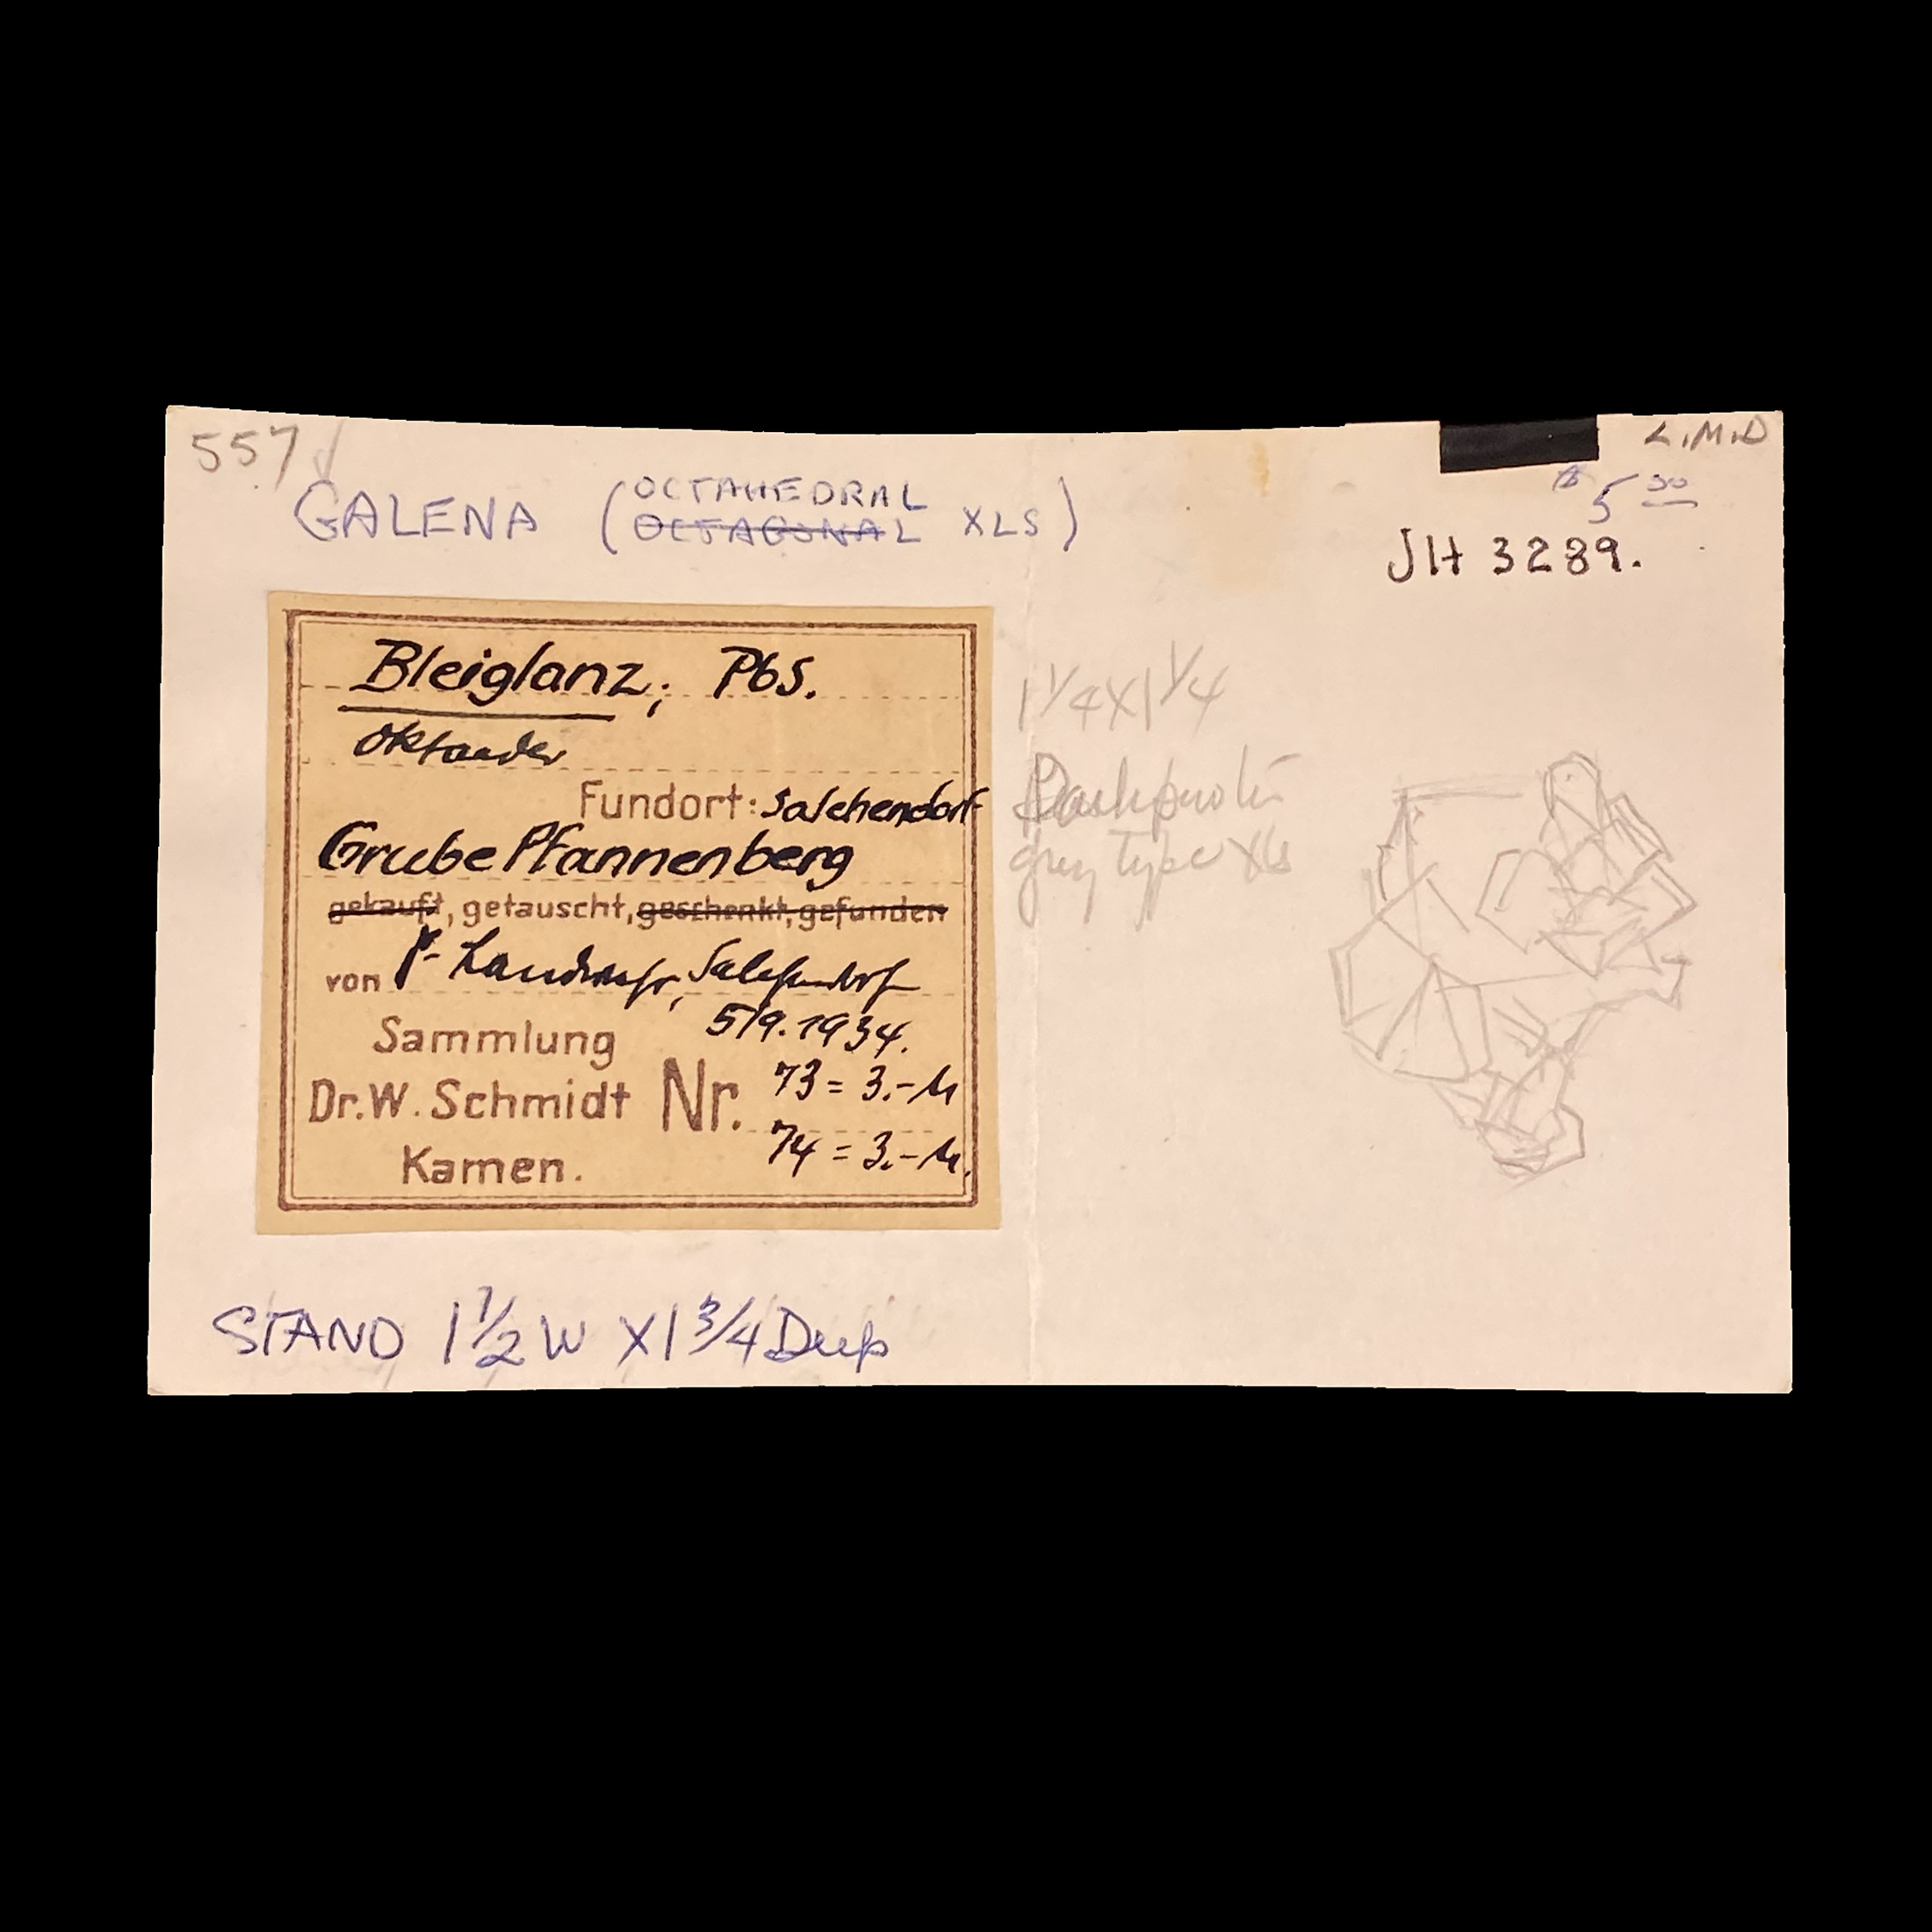 557
L.M.D
$5.00
GALENA (OCTAHEDRAL
OCTAGONAL XLS)
JH 3289.
Bleiglanz; PbS.
Oktaeder
Fundort: Salchendorf
Grube Pfannenberg
gekauft, getauscht, geschenkt, gefunden
von Salchendorf
5/9.1934.
Sammlung
Dr. W. Schmidt Nr. 73 = 3.-M
74 = 3.-M.
Kamen.
1 1/4 X 1 1/4
grey type xls
STAND 1 1/2 W X 1 3/4 Deep